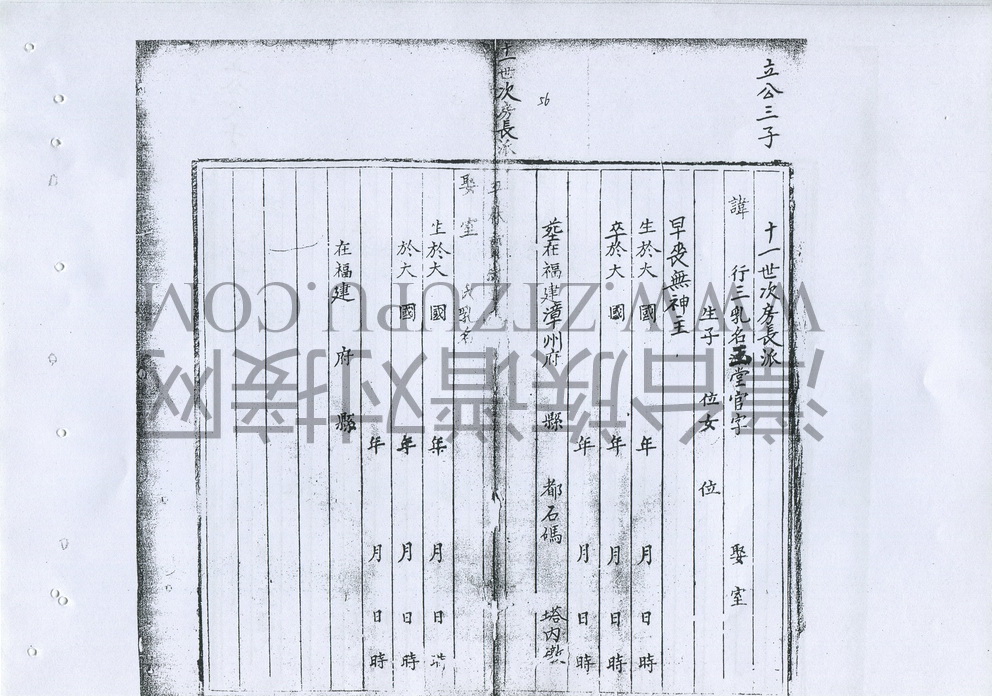 立公三子
十一世次房長派
諱 行三乳名玉堂官字 娶室
生子 位女 位
早喪無神主
生於大 國 年 月 日 時
卒於大 國 年 月 日 時
年 月 日 時
葬在福建漳州府 縣 都石碼 塔内
56
十一世次房長派
娶室 氏乳名
生於大 國 年 月 日 時
於大 國 年 月 日 時
年 月 日 時
在福建 府 縣
WWW.ZIZUPU.COM
漳台族谱对接网